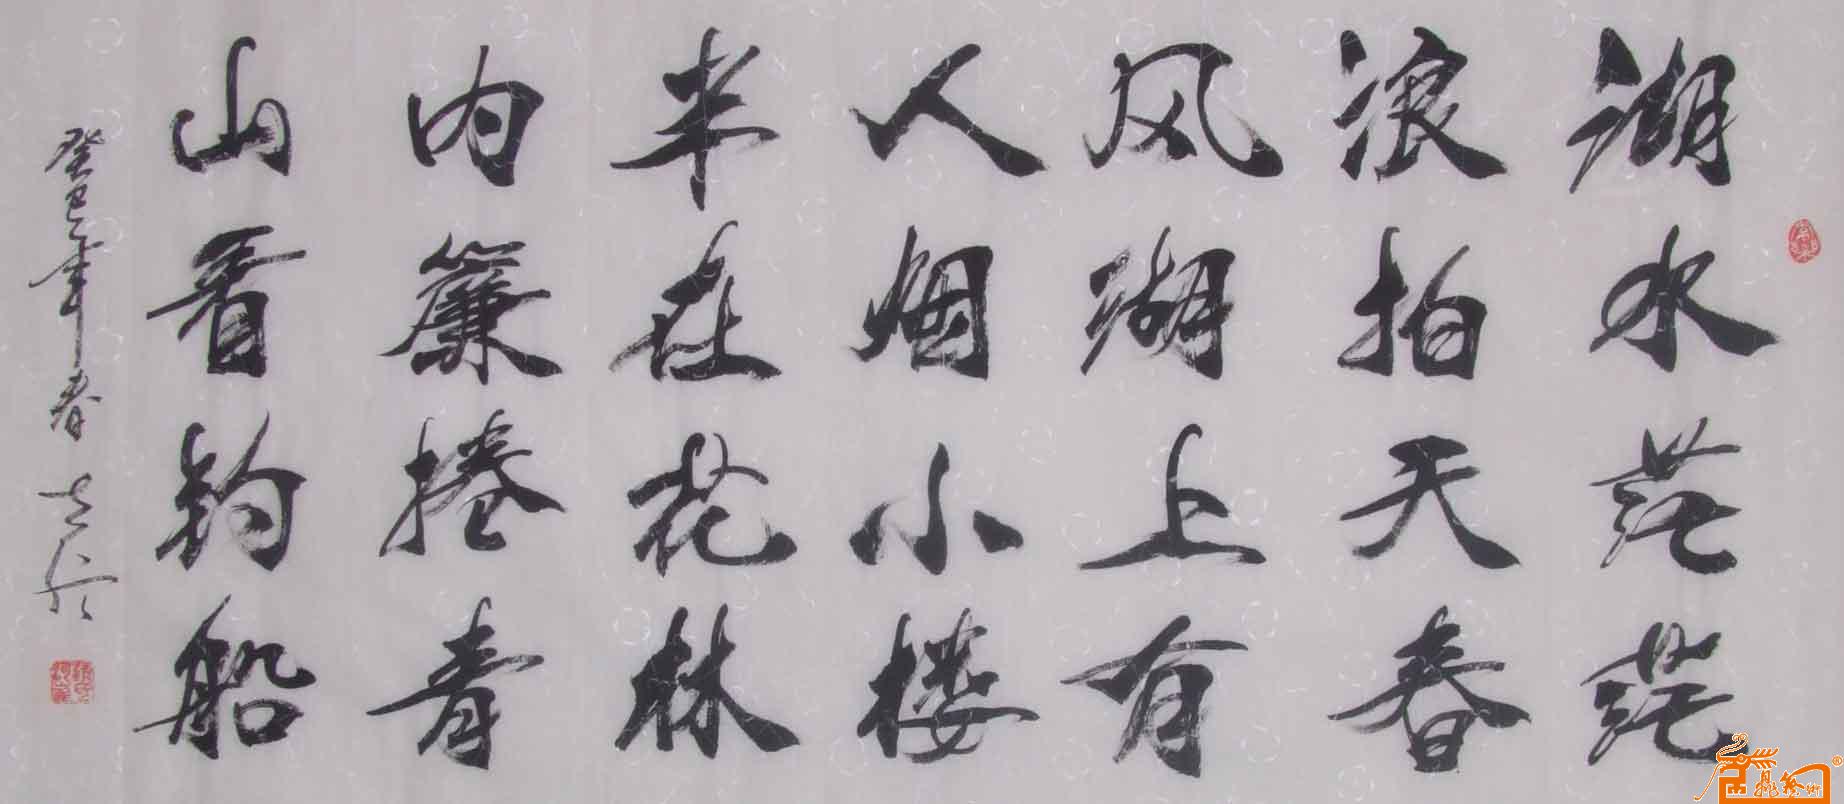 湖水茫茫
浪拍天春
风湖上有
人烟小楼
半在花林
内簾捲青
山看钓船
癸巳年春